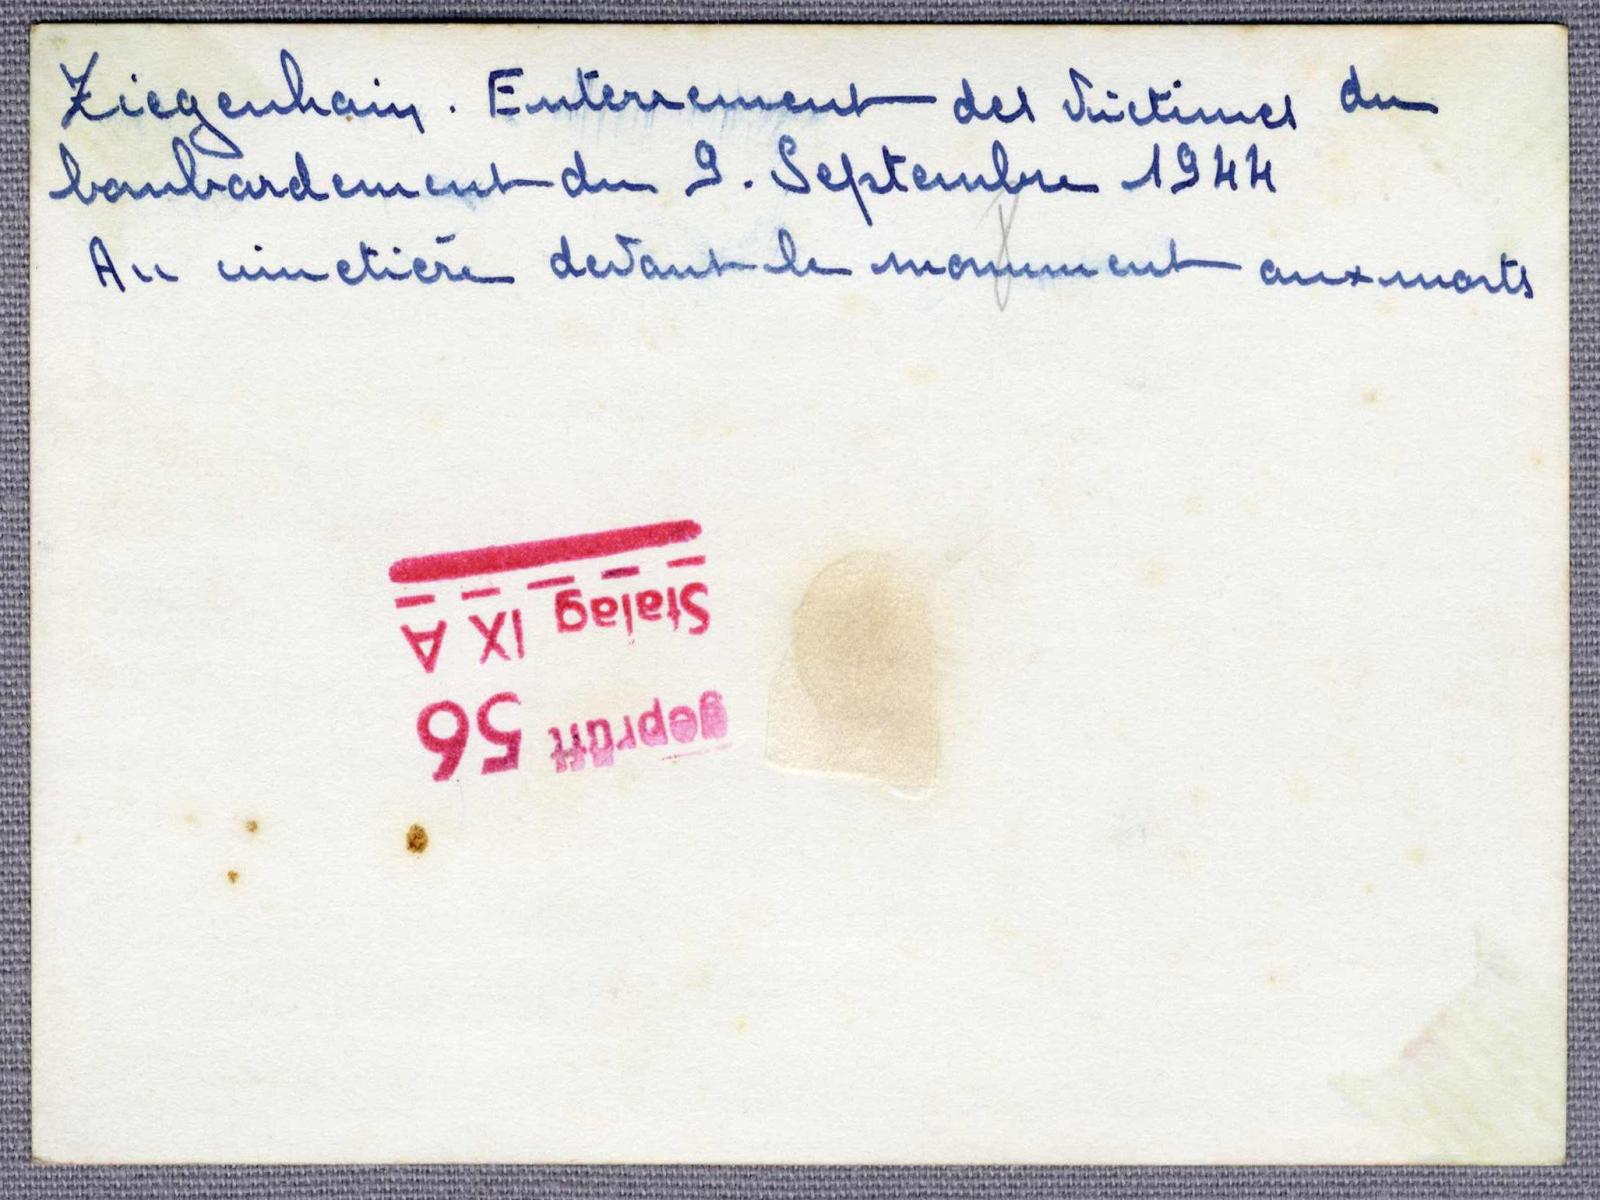 Ziegenhain. Enterrement des Victimes du
bombardement du 9. Septembre 1944
Au cimetière devant le monument aux morts
Stalag IX A
geprüft 56